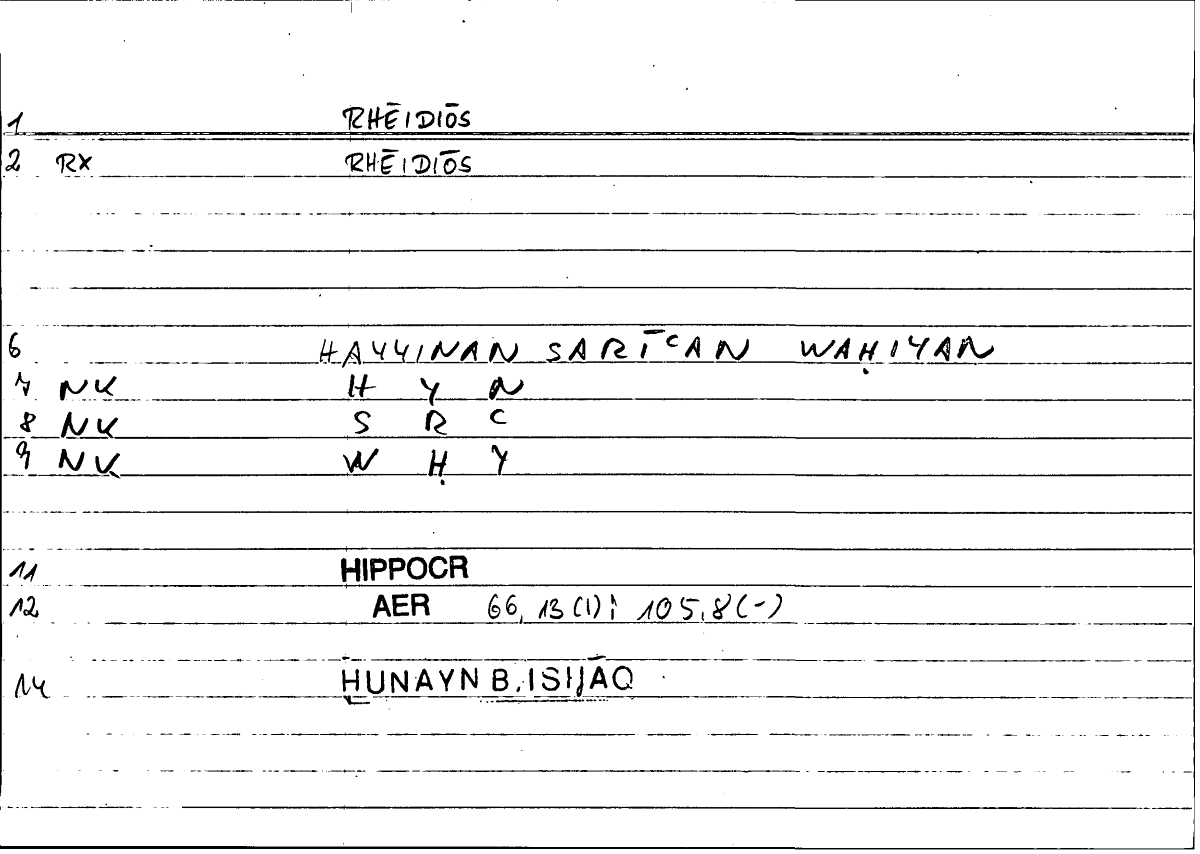 1 RHĒIDIŌS
2 RX RHĒIDIŌS
6 HAYYINAN SARĪᶜAN WAḤIYAN
7 NK H Y N
8 NK S R C
9 NK W Ḥ Y
11 HIPPOCR
12 AER 66,13(1); 105,8(-)
14 ḤUNAYN B. ISḤĀQ